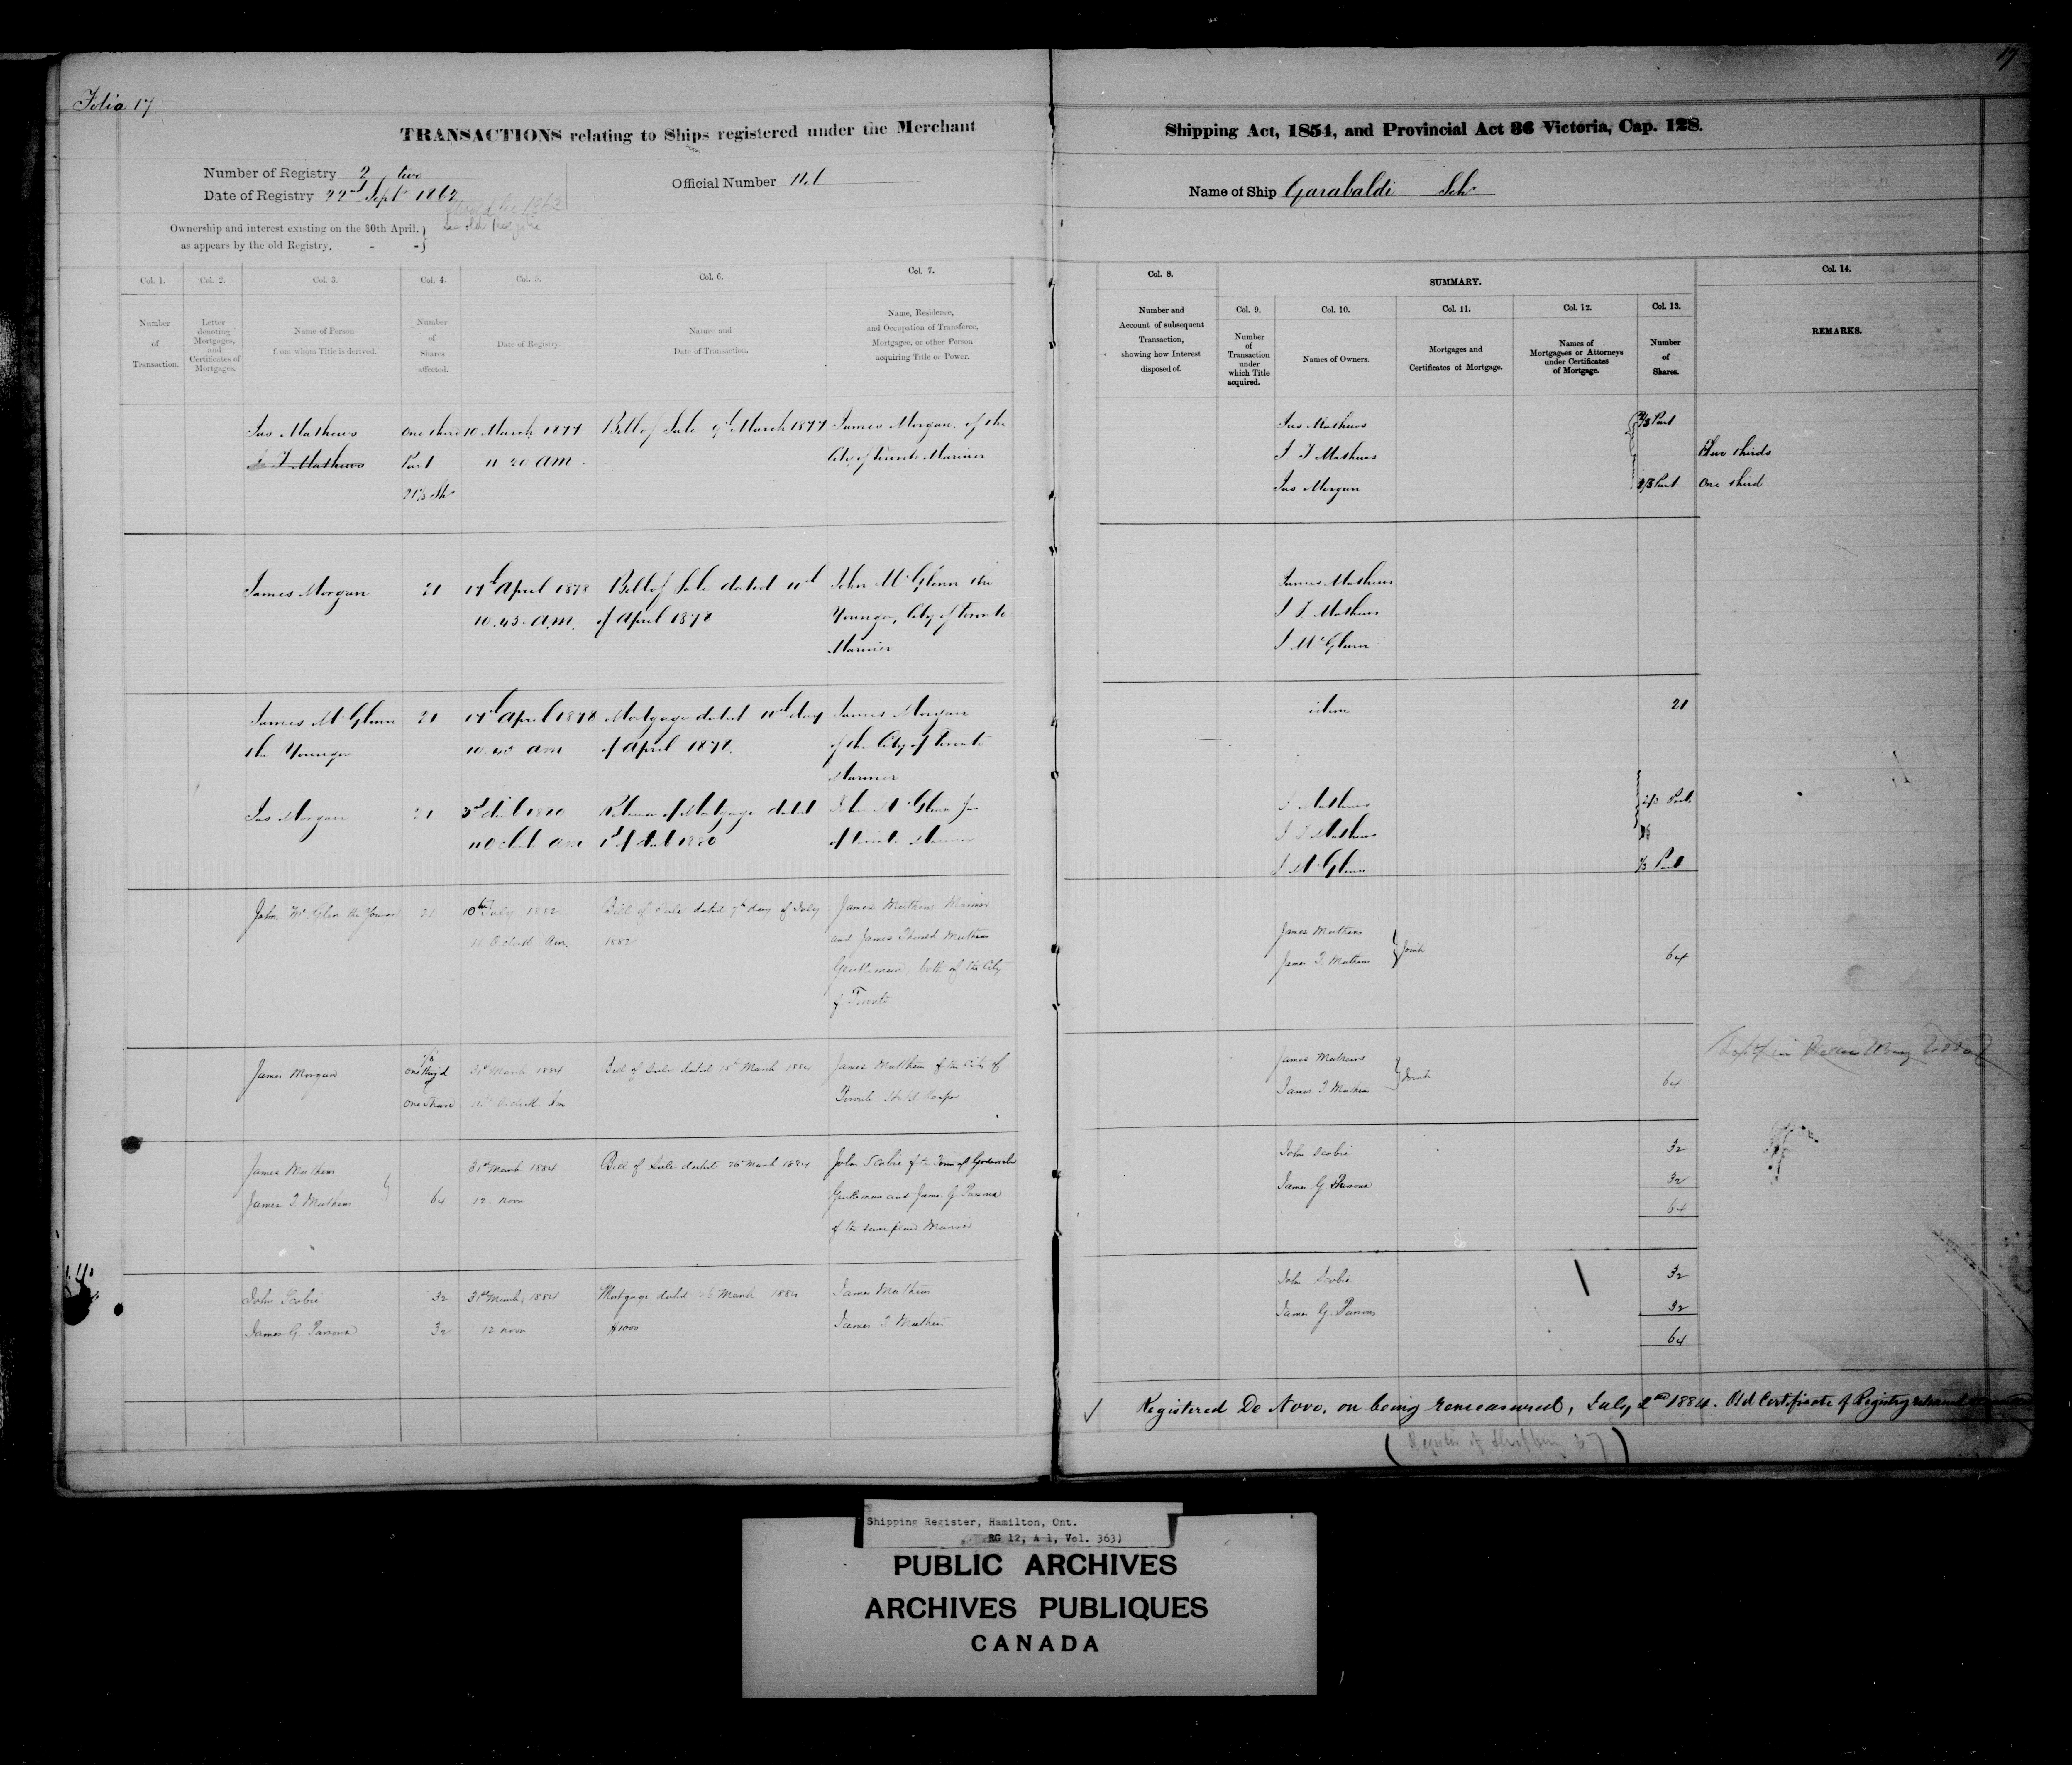 Folio 17
17
TRANSACTIONS relating to Ships registered under the Merchant
Shipping Act, 1854, and Provincial Act 36 Victoria, Cap. 128.
Number of Registry 2 two
Date of Registry 22nd Sept 1862
Official Number Nil
Name of Ship Garabaldi Schr
Ownership and interest existing on the 30th April,
as appears by the old Registry.
see old Register
Col. 1. Col. 2. Col. 3. Col. 4. Col. 5. Col. 6. Col. 7.
Number of Transaction.
Letter denoting Mortgages, and Certificates of Mortgages.
Name of Person from whom Title is derived.
Number of Shares affected.
Date of Registry.
Nature and Date of Transaction.
Name, Residence, and Occupation of Transferee, Mortgagee, or other Person acquiring Title or Power.
Col. 8.
Number and Account of subsequent Transaction, showing how Interest disposed of.
SUMMARY.
Col. 9. Col. 10. Col. 11. Col. 12. Col. 13.
Number of Transaction under which Title acquired.
Names of Owners.
Mortgages and Certificates of Mortgage.
Names of Mortgagees or Attorneys under Certificates of Mortgage.
Number of Shares.
Col. 14.
REMARKS.
Jas Mathews One third 10 March 1877 Bill of Sale 9th March 1877 James Morgan of the
J. T Mathews Part 11 20 AM City of Toronto Mariner
21⅓ Shs
Jas Mathews 2/3 Part
J. T Mathews Two thirds
Jas Morgan 1/3 Part One third
James Morgan 21 17th April 1878 Bill of Sale dated 11th John McGlenn the
10.45 A.M. of April 1878 Younger, City of Toronto
Mariner
James Mathews
J T Mathews
J McGlenn
James McGlenn 21 17th April 1878 Mortgage dated 11th day James Morgan
the Younger 10.45 am of April 1878. of the City of Toronto
Mariner
idem 21
Jas Morgan 21 3rd 1880 Release of Mortgage dated John McGlenn Jun
11 Oclock am 1st of 1880 of Toronto Mariner
J Mathews 2/3 Part
J T Mathews
J McGlenn 1/3 Part
John McGlen the Younger 21 10th July 1882 Bill of Sale dated 7th day of July James Mathews Mariner
Oclock Am. 1882 and James Mathews
Gentleman, both of the City
of Toronto
James Mathews
James T. Mathews Joint 64
James Morgan 1/3 31st March 1884 Bill of Sale dated March 1884 James Mathews of the City of
11 Oclock Am Toronto Hotel Keeper
James Mathews
James T. Mathews Joint 64
James Mathews 31st March 1884 Bill of Sale dated 26 March 1884 John Scobie of the Town of Goderich
James T Mathews 64 12 noon Gentleman and James G. Parsons
of the same place Mariner
John Scobie 32
James G. Parsons 32
64
John Scobie 32 31st March 1884 Mortgage dated 26 March 1884 James Mathews
James G. Parsons 32 12 noon $1000 James T Mathews
John Scobie 32
James G. Parsons 32
64
Registered De Novo, on being remeasured, July 2nd 1884. Old Certificate of Registry
(Register of Shipping 57)
Shipping Register, Hamilton, Ont.
RG 12, A 1, Vol. 363)
PUBLIC ARCHIVES
ARCHIVES PUBLIQUES
CANADA